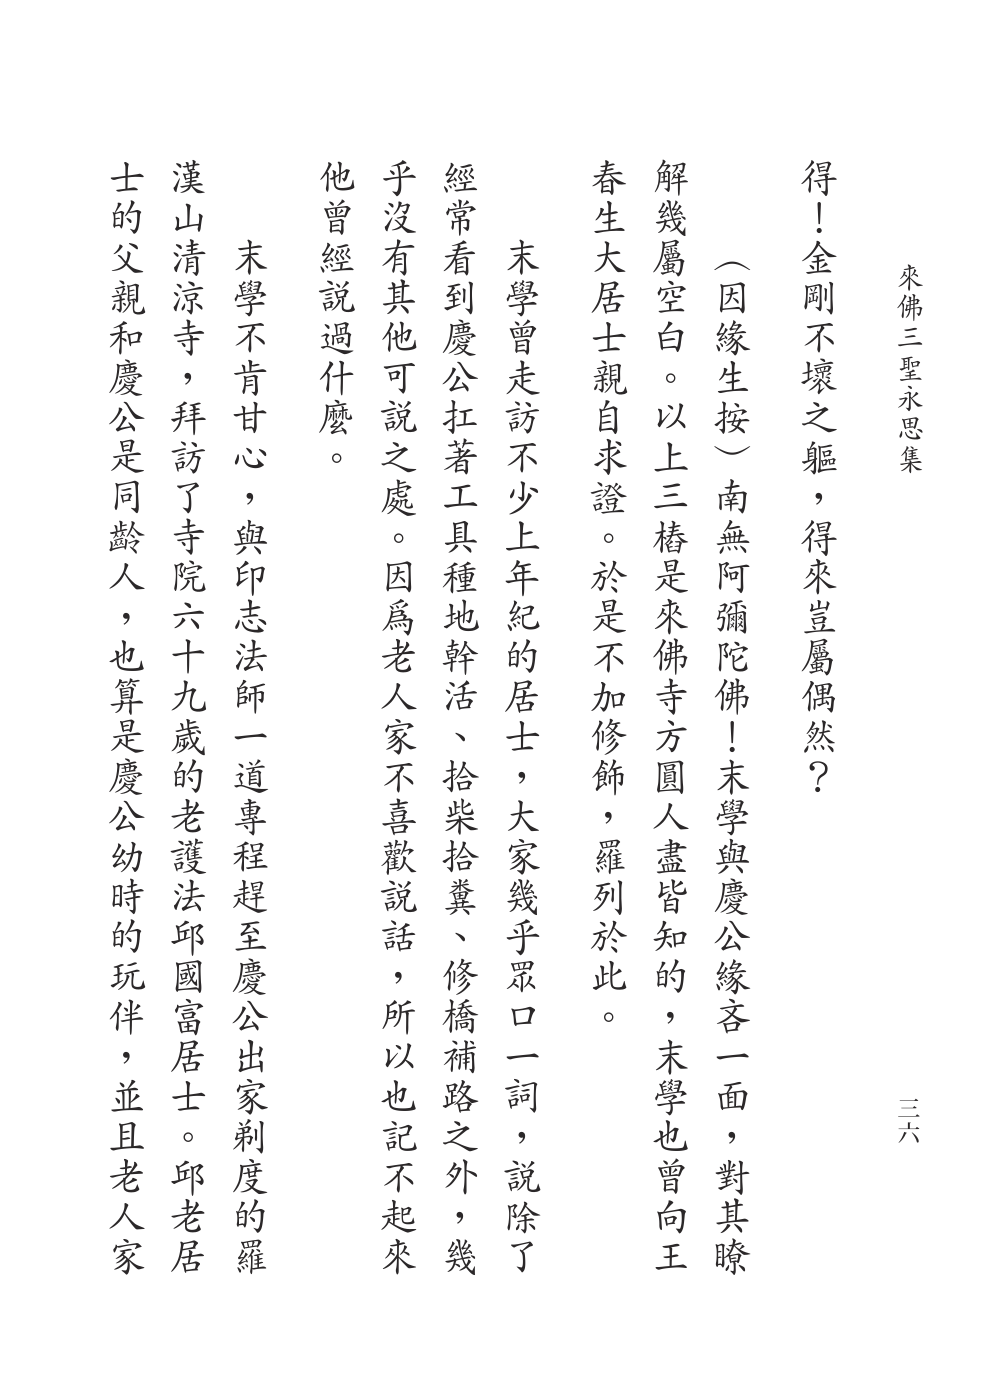 來佛三聖永思集
三六
得！金剛不壞之軀，得來豈屬偶然？
（因緣生按）南無阿彌陀佛！末學與慶公緣吝一面，對其瞭
解幾屬空白。以上三樁是來佛寺方圓人盡皆知的，末學也曾向王
春生大居士親自求證。於是不加修飾，羅列於此。
末學曾走訪不少上年紀的居士，大家幾乎眾口一詞，説除了
經常看到慶公扛著工具種地幹活、拾柴拾糞、修橋補路之外，幾
乎沒有其他可説之處。因爲老人家不喜歡説話，所以也記不起來
他曾經説過什麼。
末學不肯甘心，與印志法師一道專程趕至慶公出家剃度的羅
漢山清涼寺，拜訪了寺院六十九歲的老護法邱國富居士。邱老居
士的父親和慶公是同齡人，也算是慶公幼時的玩伴，並且老人家